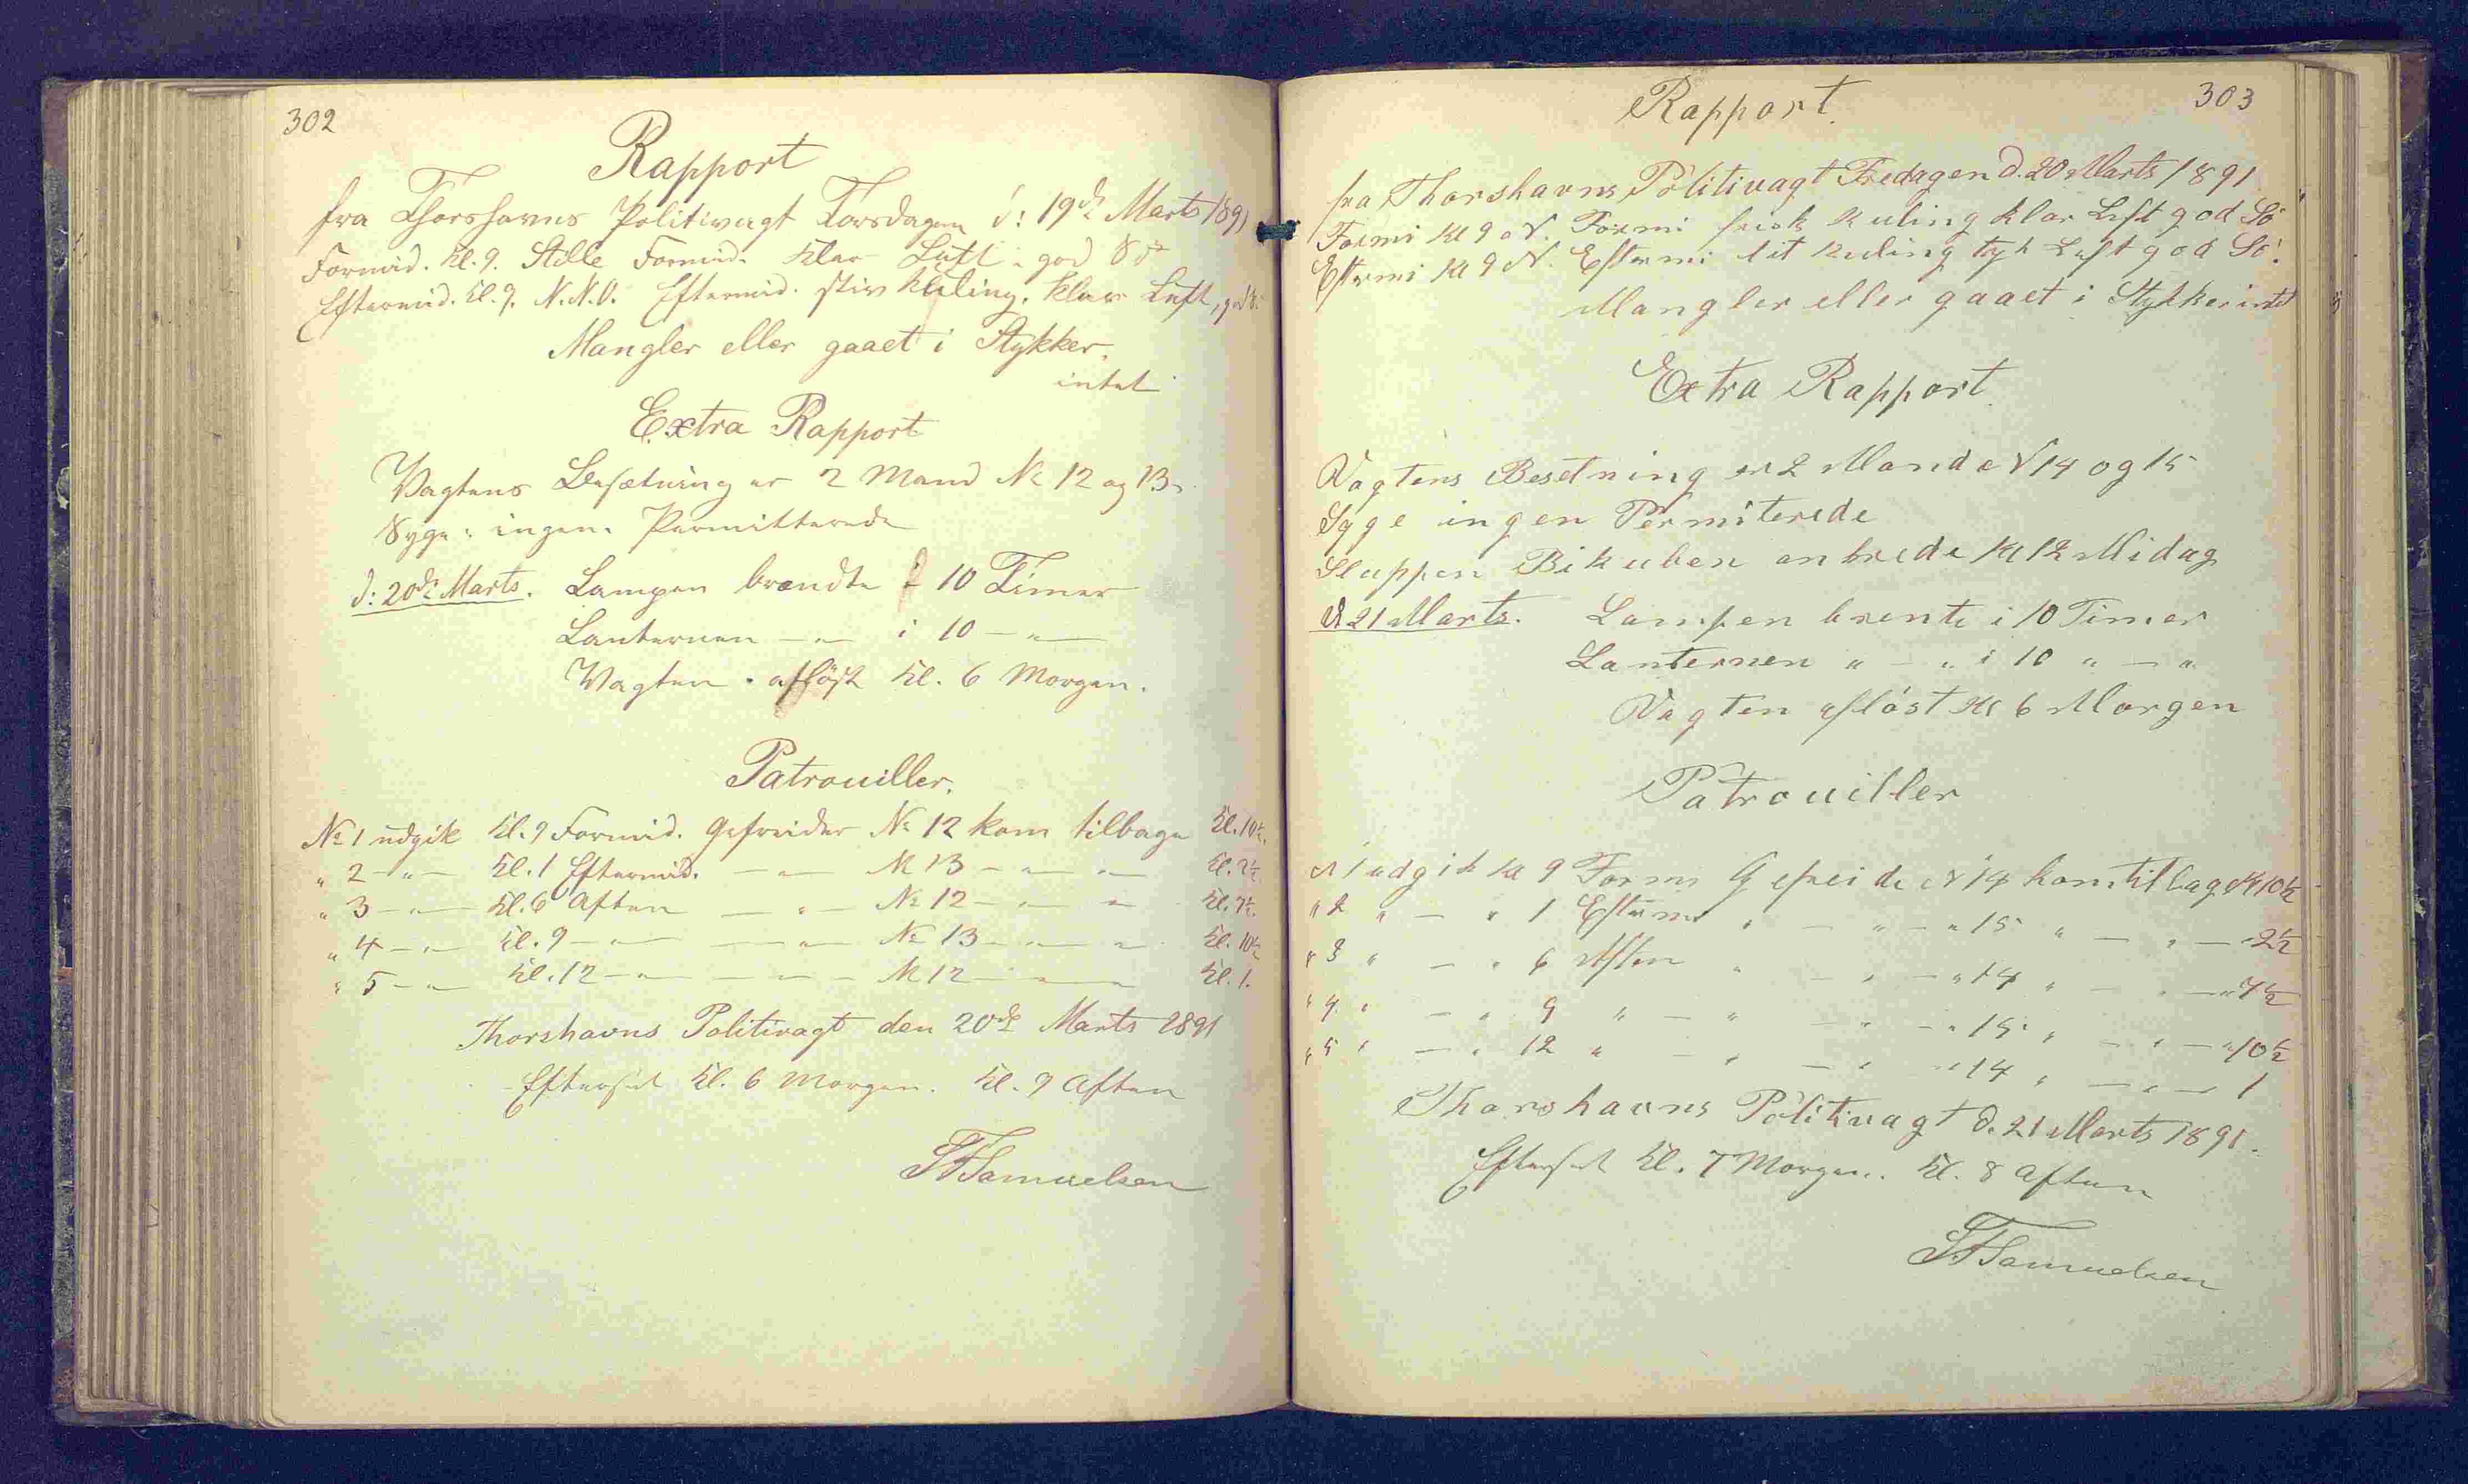 302
Rapport
fra Thorshavns Politivagt Torsdagen d: 19de Marts 1891
Formid. Kl. 9. Stille Formid. Klar Luft god Sö
Eftermid. Kl. 9. N.N.O. Eftermid. stiv Kuling. Klar Luft, god
Mangler eller gaaet i Stykker.
intet
Extra Rapport
Vagtens Besætning er 2 Mand No 12 og 13.
Syge: ingen. Permitterede
d: 20de Marts. Lampen brændte i 10 Timer
Lanternen — " — i 10 — " —
Vagten aflöst Kl. 6 Morgen.
Patrouiller.
No 1 udgik Kl. 9 Formid. Gefreider No 12 kom tilbage Kl. 10½.
" 2 — " — Kl. 1 Eftermid. — " — No 13 — " — " — Kl. 2½
" 3 — " — Kl. 6 Aften — " — No 12 — " — " — Kl. 7½.
" 4 — " — Kl. 9 — " — — " — No 13 — " — " — Kl. 10½
" 5 — " — Kl. 12 — " — — " — No 12 — " — " — Kl. 1.
Thorshavns Politivagt den 20de Marts 1891
Efterset Kl. 6 Morgen. Kl. 9 Aften
Samuelsen
303
Rapport.
fra Thorshavns Politivagt Fredagen d. 20 Marts 1891
Formi Kl 9 N. Formi frisk Kuling klar Luft god Sö
Eftermi Kl 9 N. Eftermi lit Kuling tyk Luft god Sö.
Mangler eller gaaet i Stykker intet
Extra Rapport.
Vagtens Besetning er 2 Mand N 14 og 15
Syge ingen Permiterede
Sluppen Bikuben ankrede Kl 12 Midag
d 21 Marts. Lampen brente i 10 Timer
Lanternen " — " i 10 " — "
Vagten aflöst Kl 6 Morgen
Patrouiller
N 1 udgik Kl 9 Formi Gefreide N 14 kom tilbage Kl 10½
" 2 " — " 1 Eftermi " — " — " 15 " — " — " 2½
" 3 " — " 6 Aften " — " — " 14 " — " — " 7½
" 4 " — " 9 " — " — " — " 15 " — " — " 10½
" 5 " — " 12 " — " — " — " 14 " — " — 1
Thorshavns Politivagt d. 21 Marts 1891.
Efterset Kl. 7 Morgen. Kl. 8 Aften
Samuelsen